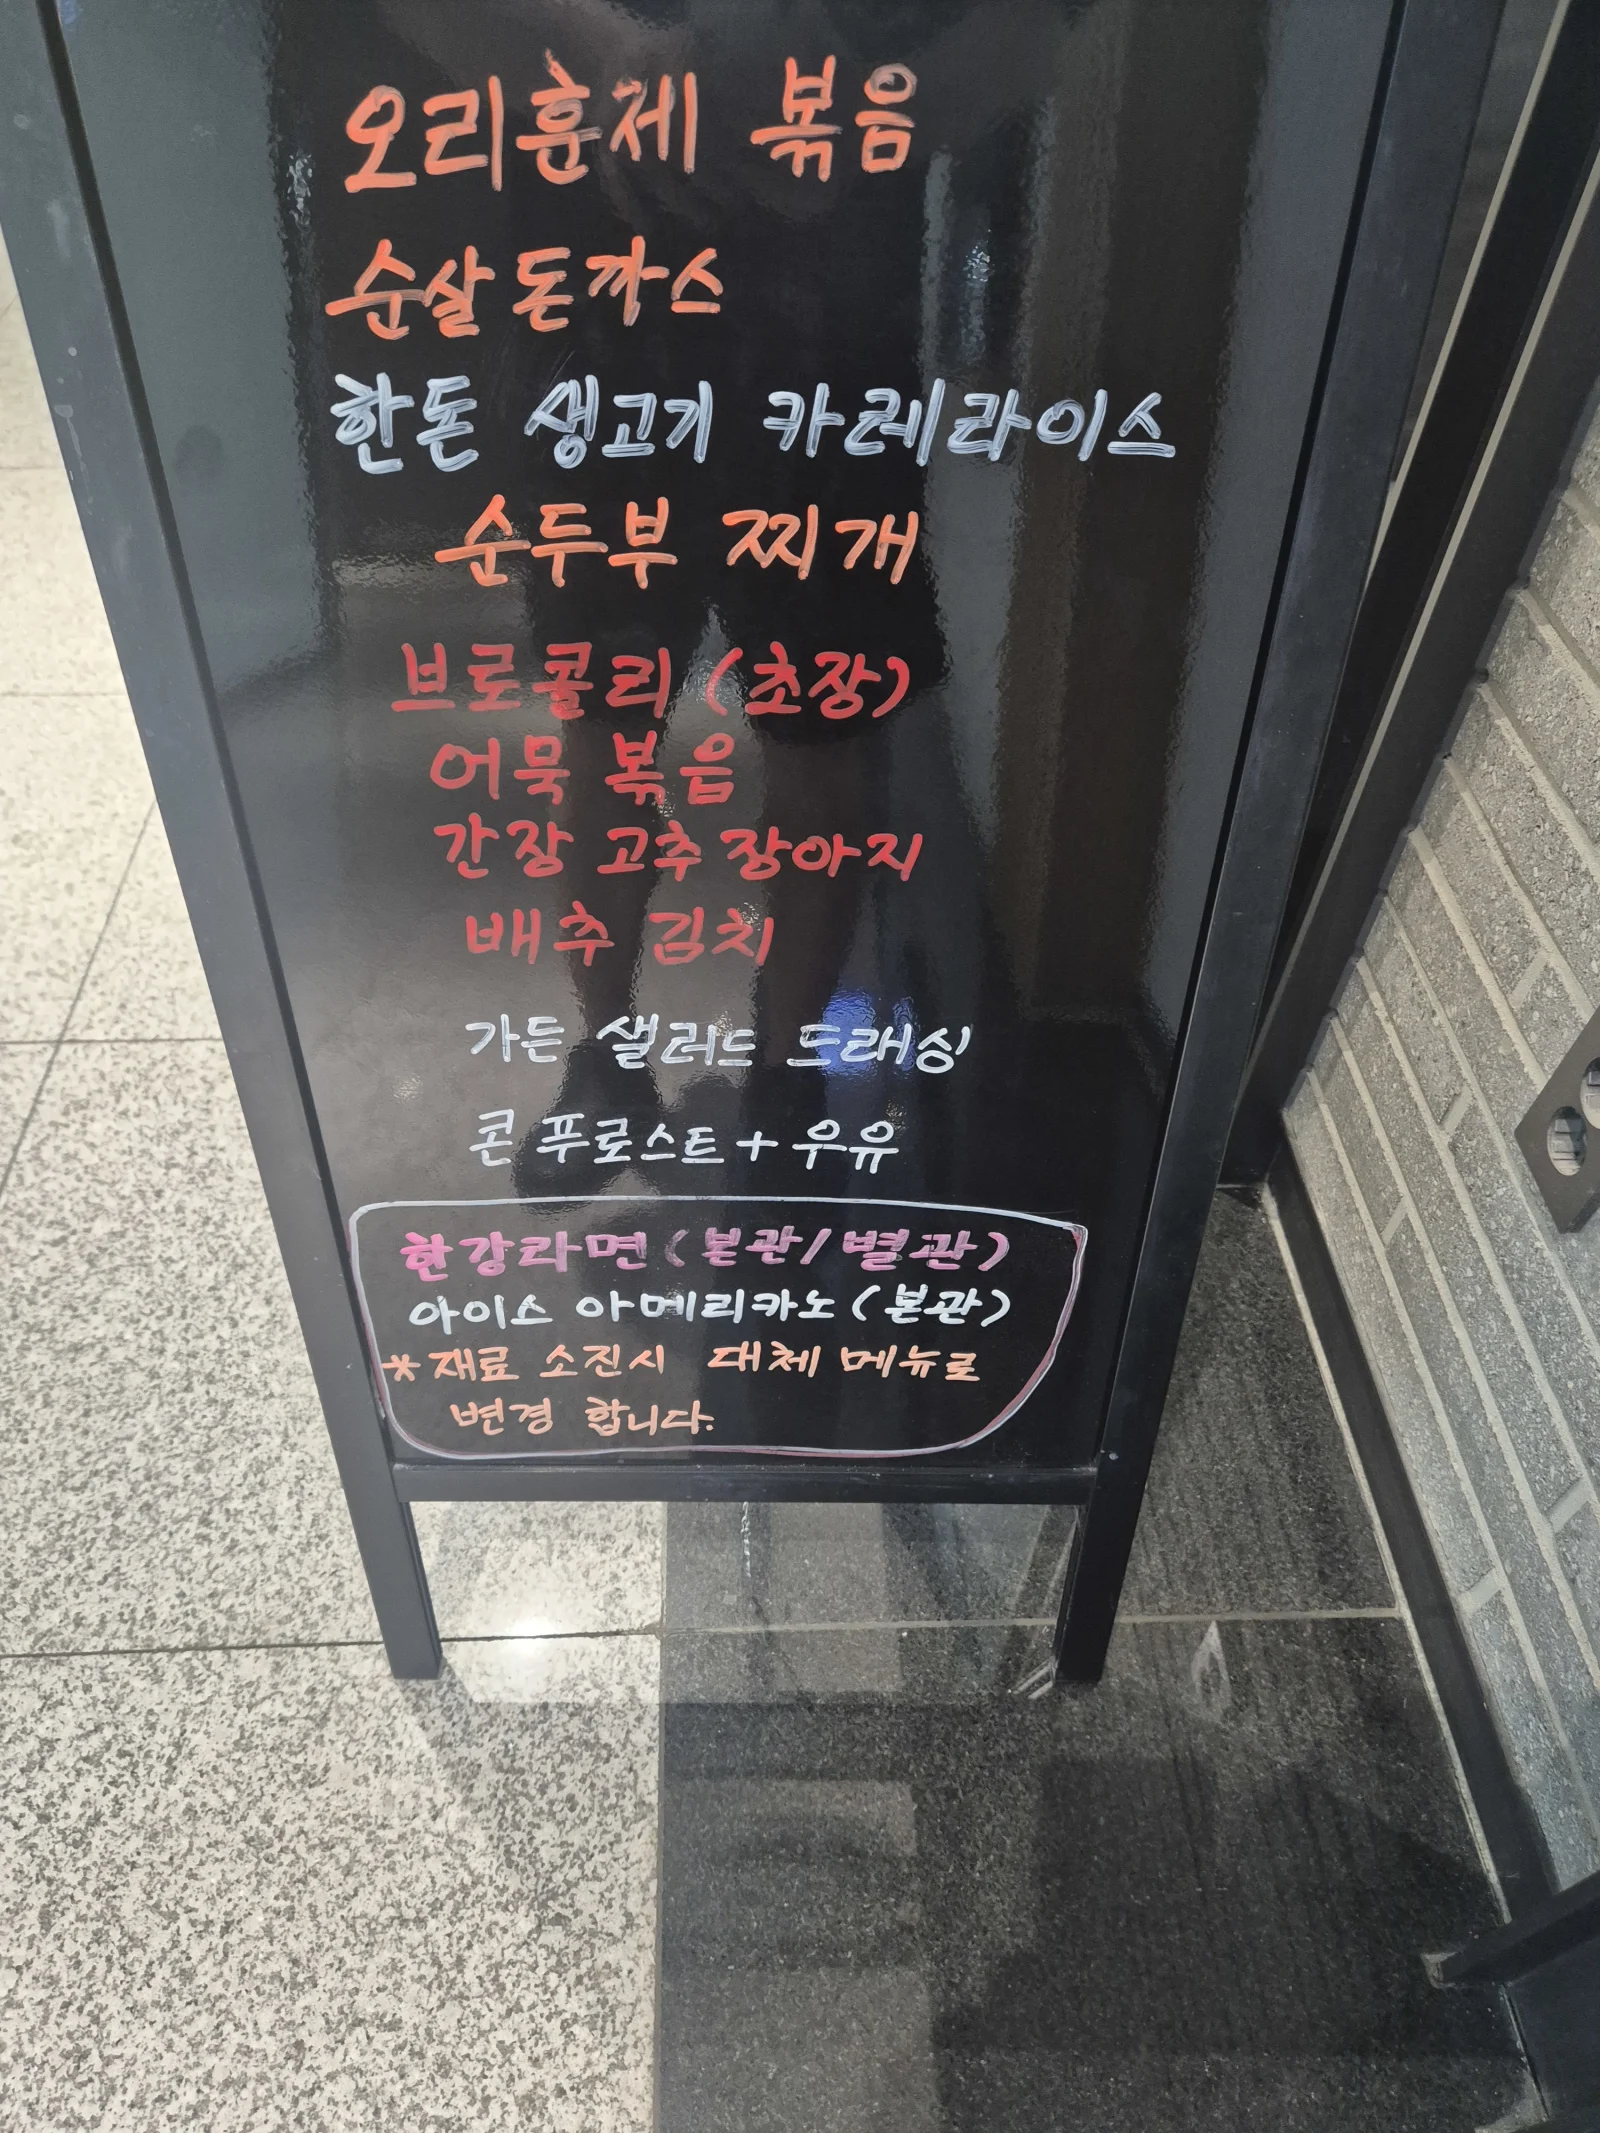 오리훈제 볶음
순살돈까스
한돈 생고기 카레라이스
순두부 찌개
브로콜리 (초장)
어묵 볶음
간장 고추장아지
배추 김치
가든 샐러드 드래싱
콘 푸로스트 + 우유
한강라면 (본관/별관)
아이스 아메리카노 (본관)
* 재료 소진시 대체 메뉴로
변경 합니다.